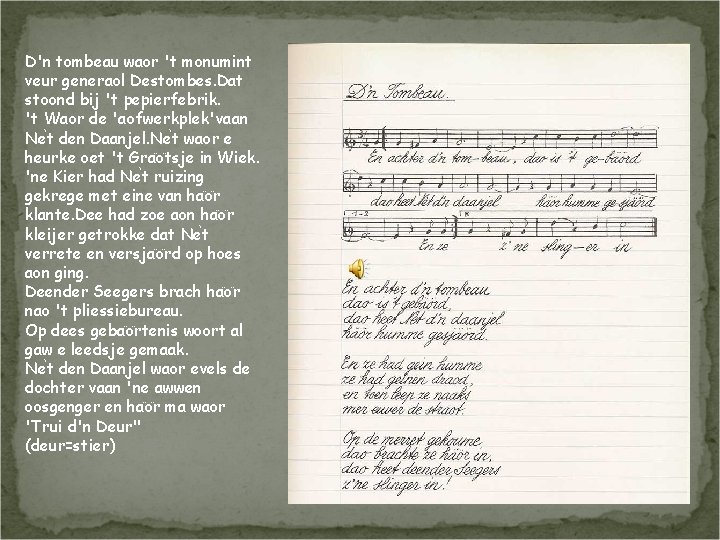 D'n tombeau waor 't monumint
veur generaol Destombes.Dat
stoond bij 't pepierfebrik.
't Waor de 'aofwerkplek'vaan
Nèt den Daanjel.Nèt waor e
heurke oet 't Graötsje in Wiek.
'ne Kier had Nèt ruizing
gekrege met eine van häör
klante.Dee had zoe aon häör
kleijer getrokke dat Nèt
verrete en versjäörd op hoes
aon ging.
Deender Seegers brach häör
nao 't pliessiebureau.
Op dees gebäörtenis woort al
gaw e leedsje gemaak.
Nèt den Daanjel waor evels de
dochter vaan 'ne awwen
oosgenger en häör ma waor
'Trui d'n Deur"
(deur=stier)
D'n Tombeau.
En achter d'n tom-beau, dao is 't ge-bäörd
dao heet Nèt d'n daanjel häör humme ge-sjäörd
1-2
En ze z'ne sling-er in
En achter d'n tombeau
dao is 't gebäörd,
dao heet Nèt d'n daanjel
häör humme gesjäörd.
En ze had gein humme
ze had geinen draod,
en toen leep ze naaks
mer euver de straot.
Op de merret gekoume,
dao brachte ze häör in,
dao heet deender Seegers
z'ne slinger in!